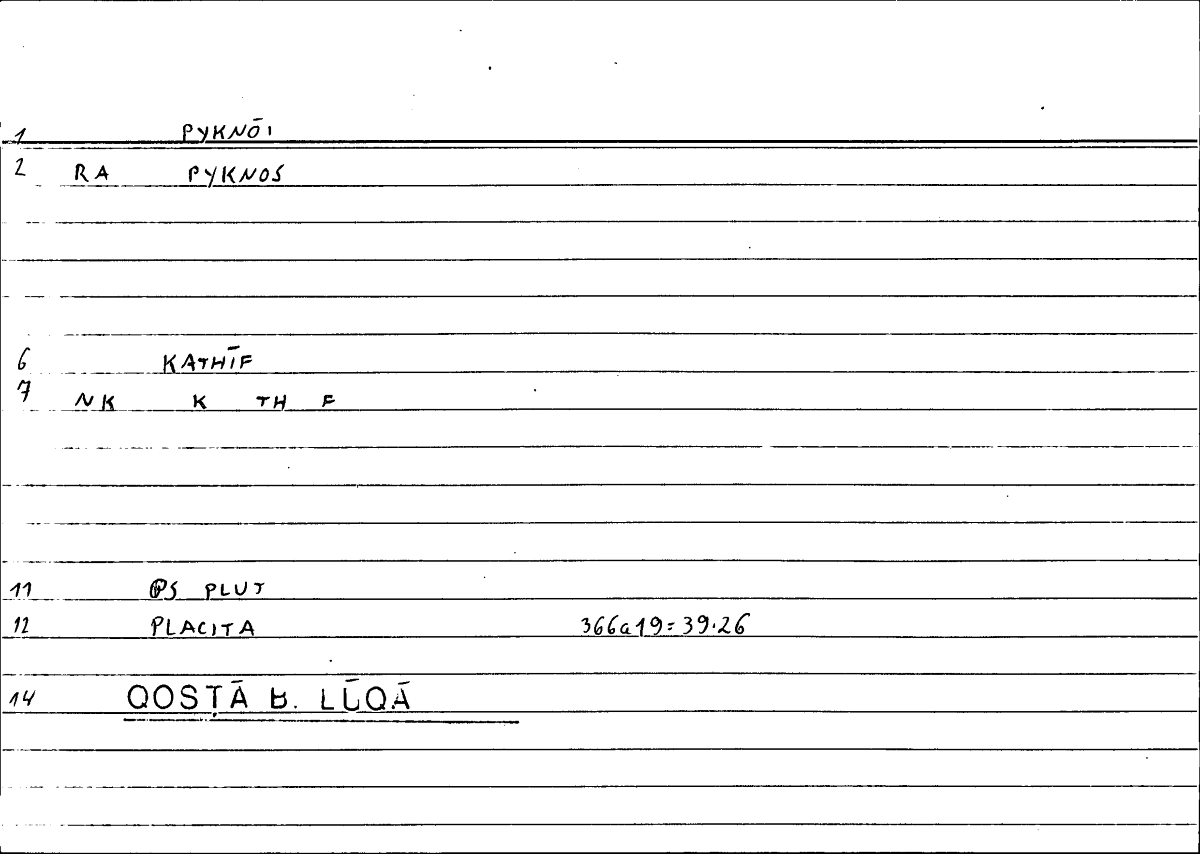 1 PYKNŌI
2 RA PYKNOS
6 KATHĪF
7 NK K TH F
11 PS PLUT
12 PLACITA 366a19=39.26
14 QOSṬĀ B. LŪQĀ